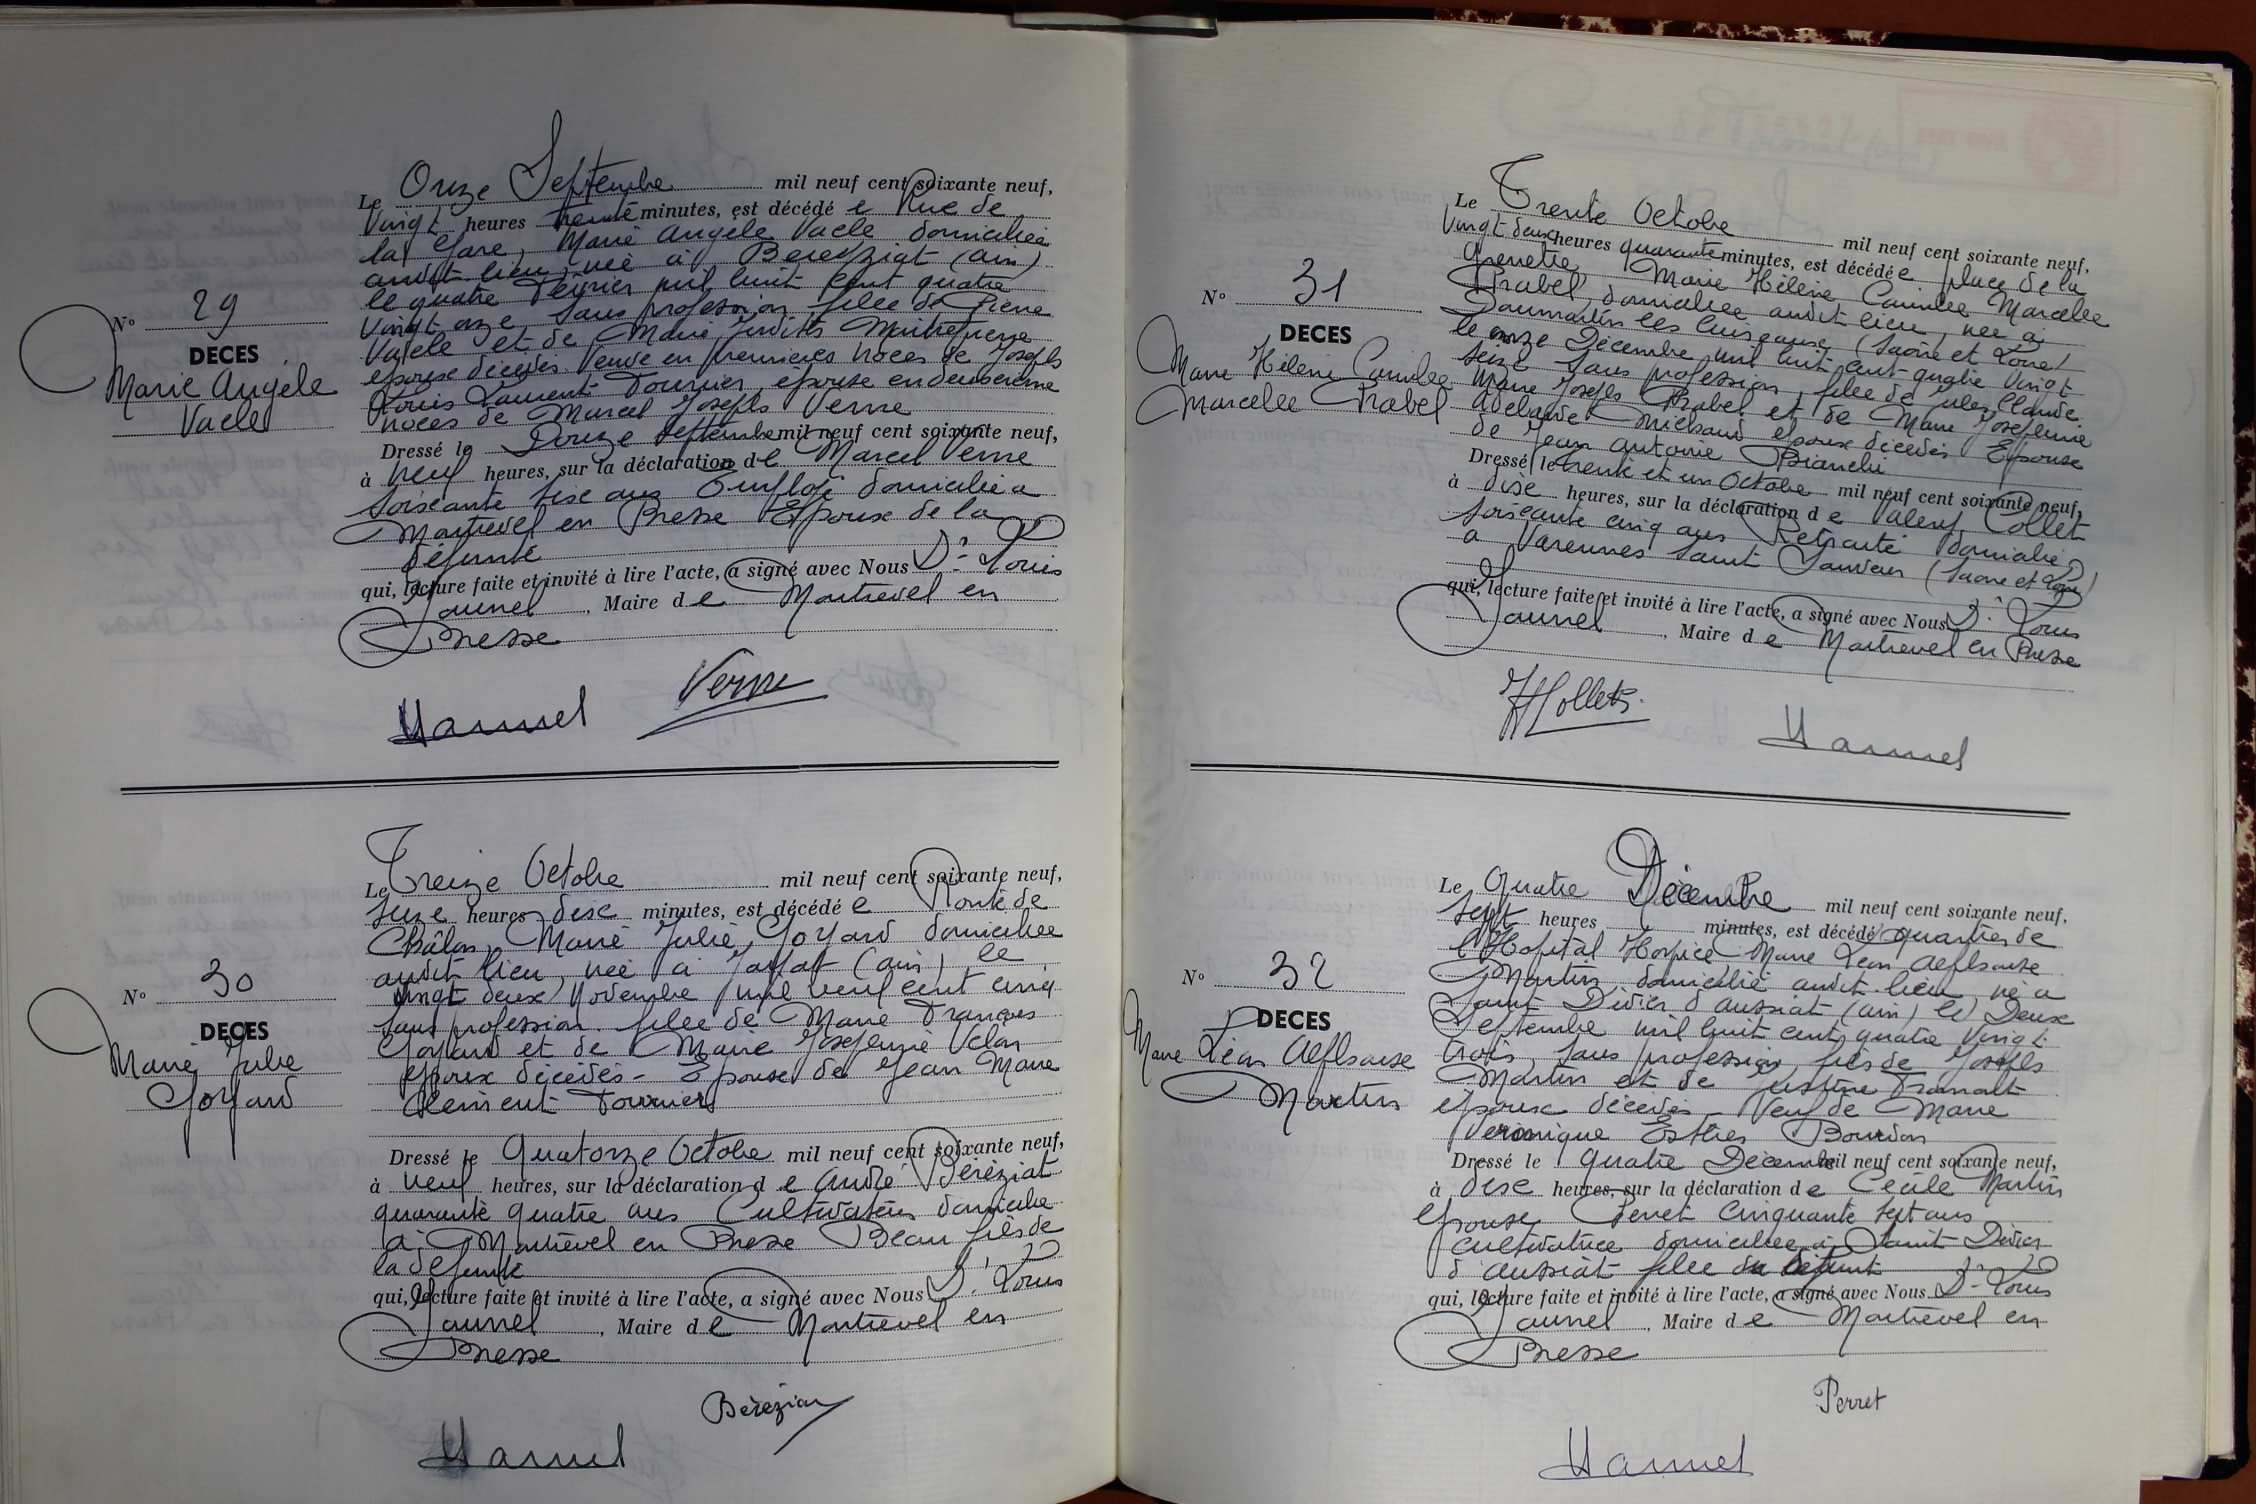 Le Onze Septembre mil neuf cent soixante neuf,
Vingt heures trente minutes, est décédé e Rue de
la Gare, Marie Angèle Vaele domiciliée
audit lieu, née à Béréziat (ain)
le quatre Février mil huit cent quatre
Vingt onze sans profession, fille de Pierre
et de Marie
époux décédés Veuve en premières noces de Joseph
Louis Laurent Fournier, épouse en deuxième
noces de Marcel Joseph Verne
N° 29
DECES
Marie Angèle
Vaele
Dressé le Douze Septembre mil neuf cent soixante neuf,
à neuf heures, sur la déclaration de Marcel Verne
soixante dix ans Employé domicilié à
Montrevel en Bresse Epoux de la
défunte
qui, lecture faite et invité à lire l'acte, a signé avec Nous Dr. Louis
Jaunel, Maire de Montrevel en
Bresse
Verne
Le Treize Octobre mil neuf cent soixante neuf,
seize heures dix minutes, est décédé e Route de
Châlon, Marie Julie Goyard domiciliée
audit lieu, née à Jayat (ain) le
vingt deux Novembre mil neuf cent cinq
sans profession fille de Marie François
Goyard et de Marie Josephine Velon
époux décédés - Epouse de Jean Marie
Clément Fournier
N° 30
DECES
Marie Julie
Goyard
Dressé le Quatorze Octobre mil neuf cent soixante neuf,
à neuf heures, sur la déclaration de André Béréziat
quarante quatre ans Cultivateur domicilié
à Montrevel en Bresse Beau fils de
la défunte
qui, lecture faite et invité à lire l'acte, a signé avec Nous Dr. Louis
Jaunel, Maire de Montrevel en
Bresse
Béréziat
Le Trente Octobre mil neuf cent soixante neuf,
Vingt deux heures quarante minutes, est décédé e place de la
Grenette, Marie Hélène Camille Marcelle
domiciliée audit lieu, née à
Dommartin les Cuiseaux (Saône et Loire)
le onze Décembre mil huit cent quatre Vingt
seize sans profession, fille de Jules Claude
Marie Joseph et de Marie Josephine
Adélaïde Michaud époux décédés Epouse
de Jean Antoine Bianchi
N° 31
DECES
Marie Hélène Camille
Marcelle
Dressé le trente et un Octobre mil neuf cent soixante neuf,
à dix heures, sur la déclaration de Valery Collet
soixante cinq ans Retraité domicilié
à Varennes Saint Sauveur (Saône et Loire)
qui, lecture faite et invité à lire l'acte, a signé avec Nous Dr. Louis
Jaunel, Maire de Montrevel en Bresse
Le Quatre Décembre mil neuf cent soixante neuf,
sept heures minutes, est décédé quartier de
l'Hopital Hospice Marie Léon Alphonse
Martin domicilié audit lieu, né à
Saint Didier d'aussiat (ain) le Deux
Septembre mil huit cent quatre Vingt
trois, sans profession fils de Joseph
Martin et de Justine
époux décédés - Veuf de Marie
Véronique Esther Bourdon
N° 32
DECES
Marie Léon Alphonse
Martin
Dressé le quatre Décembre mil neuf cent soixante neuf,
à dix heures, sur la déclaration de Cécile Martin
épouse Perret Cinquante sept ans
cultivatrice domiciliée à Saint Didier
d'aussiat fille du défunt
qui, lecture faite et invité à lire l'acte, a signé avec Nous Dr. Louis
Jaunel, Maire de Montrevel en
Bresse
Perret